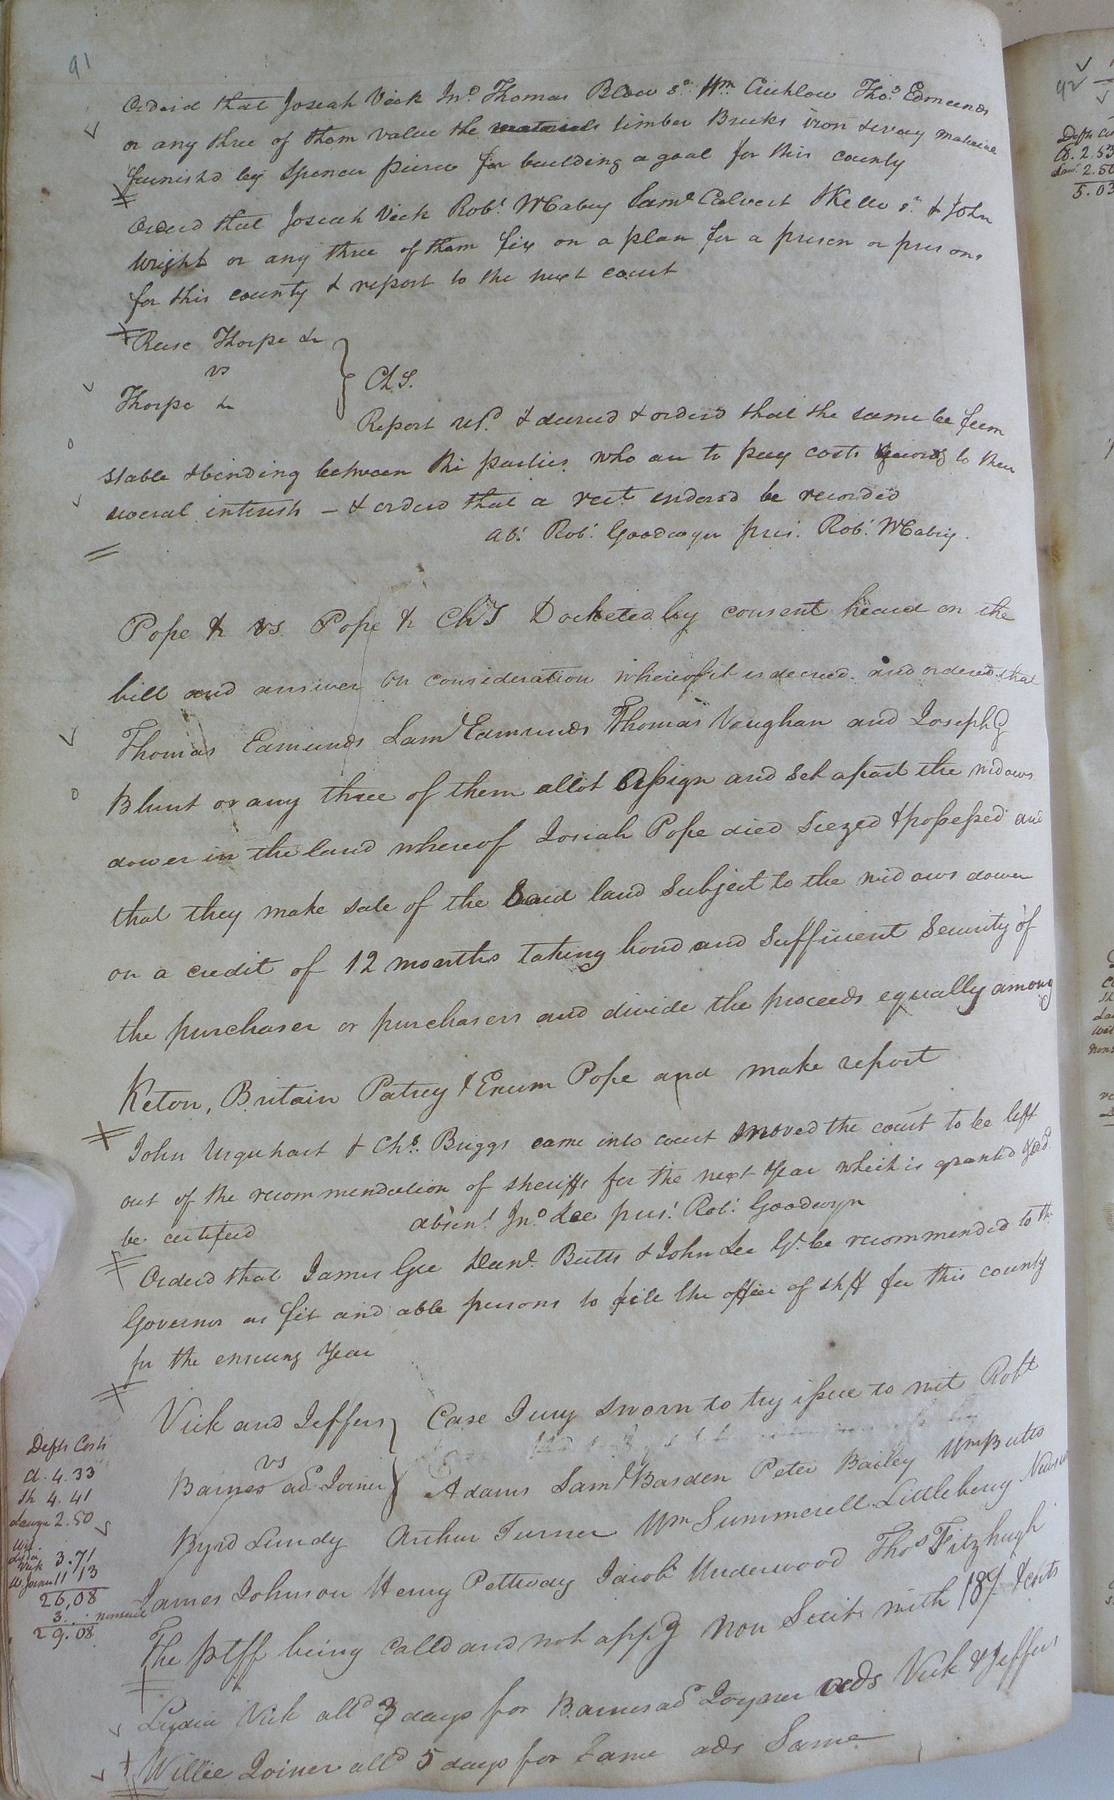 91
Orderd that Josiah Vick Jno. Thomas Blow Sr. Wm. Crichlow Thos. Edmunds
or any three of them value the materials timber Bricks iron & every material
furnishd by Spencer Pierce for building a goal for this county
Orderd that Josiah Vick Robt. McCabry Saml. Calvert S Kello Sr. & John
Wright or any three of them fix on a plan for a prison or prisons
for this county & report to the next court
Reese Thorpe &c
vs
Thorpe &c
Ch S.
Report retd. & decreed & orderd that the same be firm
stable & binding between the parties who are to pay costs according to their
several interests – & orderd that a rect endorsd be recorded
abt. Robt. Goodwyn prest. Robt. McCabry.
Pope &c vs. Pope &c Chy Docketed by consent heard on the
bill and answer on consideration whereof it is decreed and ordered that
Thomas Edmunds Saml Edmunds Thomas Vaughan and Joseph G
Blunt or any three of them allot assign and set apart the widows
dower in the land whereof Josiah Pope died Siezed & possessed and
that they make sale of the Said land Subject to the widows dower
on a credit of 12 months taking bond and Sufficient Security of
the purchaser or purchasers and divide the proceeds equally among
Keton, Britain Patsey & Enum Pope and make report
John Urquhart & Chs. Briggs came into court moved the court to be left
out of the recommendation of sheriffs for the next year which is granted & ordd
be certified absent Jno. Lee prest. Robt. Goodwyn
Orderd that James Gee Benn. Butts & John Lee Gt. be recommended to the
Governor as fit and able persons to fill the office of shff for this county
for the ensuing year
Vick and Jeffers
vs
Barnes ad. Joiner
Case Jury sworn to try issue to wit Robt
Adams Saml Barden Peter Bailey Wm Butts
Byrd Lundy Arthur Turner Wm Summerell Littleberry Newsom
James Johnson Henry Pettway Jacob Underwood Thos Fitzhugh
The ptff being calld and not appg Non Suit with 189 & costs
Lydia Vick alld 3 days for Barnes ad Joyner ads Vick & Jeffers
Willie Joiner alld 5 days for Same ads Same
Defts Costs
Cl. 4.33
Sh 4.41
Lawyr 2.50
Wit.
Lydia Vick 3.71
W. Joiner 11/13
26,08
3. .. nonsuit
29.08
92
Defts Co
Cl. 2.53
Law. 2.50
5.03